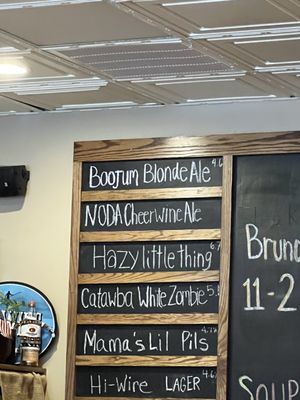 Boojum Blonde Ale
NODA Cheerwine Ale
Hazy little thing
Catawba White Zombie
Mama's Lil Pils
Hi-Wire LAGER 4.6
Brun
11-2
SOUP